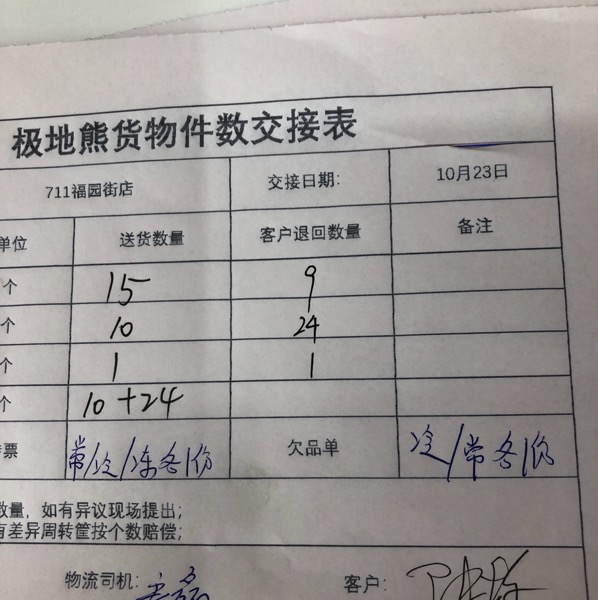 极地熊货物件数交接表
711福园街店 交接日期: 10月23日
单位 送货数量 客户退回数量 备注
个 15 9
个 10 24
个 1 1
个 10+24
票 常/冷/冻各1份 欠品单 冷/常各1份
数量，如有异议现场提出；
有差异周转筐按个数赔偿；
物流司机: 客户: